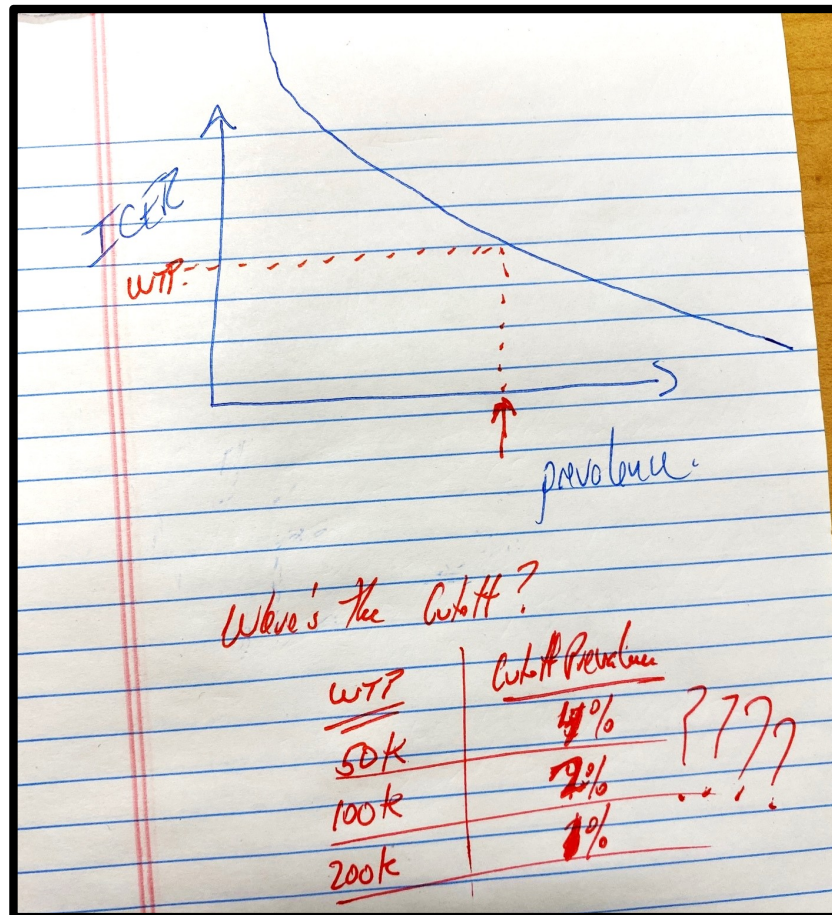 ICER
WTP.
prevalence.
Where's the Cutoff?
WTP Cutoff Prevalence
50K 4%
100K 2%
200K 1%
????